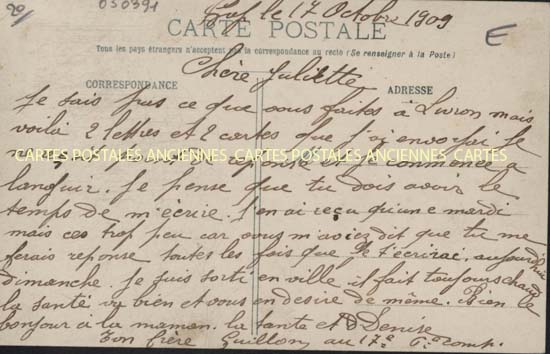 20/
050391
Gap le 17 Octobre 1909
CARTE POSTALE
E
Tous les pays étrangers n'acceptent pas la correspondance au recto (Se renseigner à la Poste)
Chère Juliette
CORRESPONDANCE
ADRESSE
Je sais pas ce que vous faites à Livron mais
voilà 2 lettres et 2 cartes que j'ai envoyai je
commence à
CARTES POSTALES ANCIENNES CARTES POSTALES ANCIENNES CARTES
languir. Je pense que tu dois avoir le
temps de m'écrire. J'en ai reçu qu'une mardi
mais ces trop peu car vous m'aviez dit que tu me
ferais reponse toutes les fois que je t'écrirac. aujourd'hui
dimanche. Je suis sorti en ville il fait toujours chaud
la santé va bien et vous en desire de même. Bien le
bonjour à la maman. la tante et Denise
ton frère Guillon au 17e